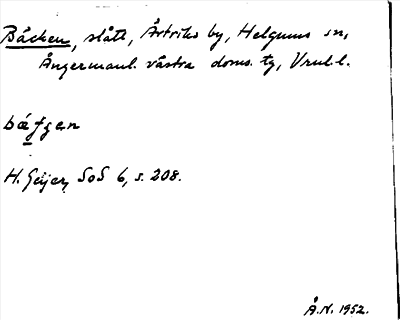 Bäcken, slått, Årtriks by, Helgums sn,
Ångermanl. västra doms. tg, Vnl. l.
bæfgen
H. Geijer, SoS 6, s. 208.
Å.N. 1952.